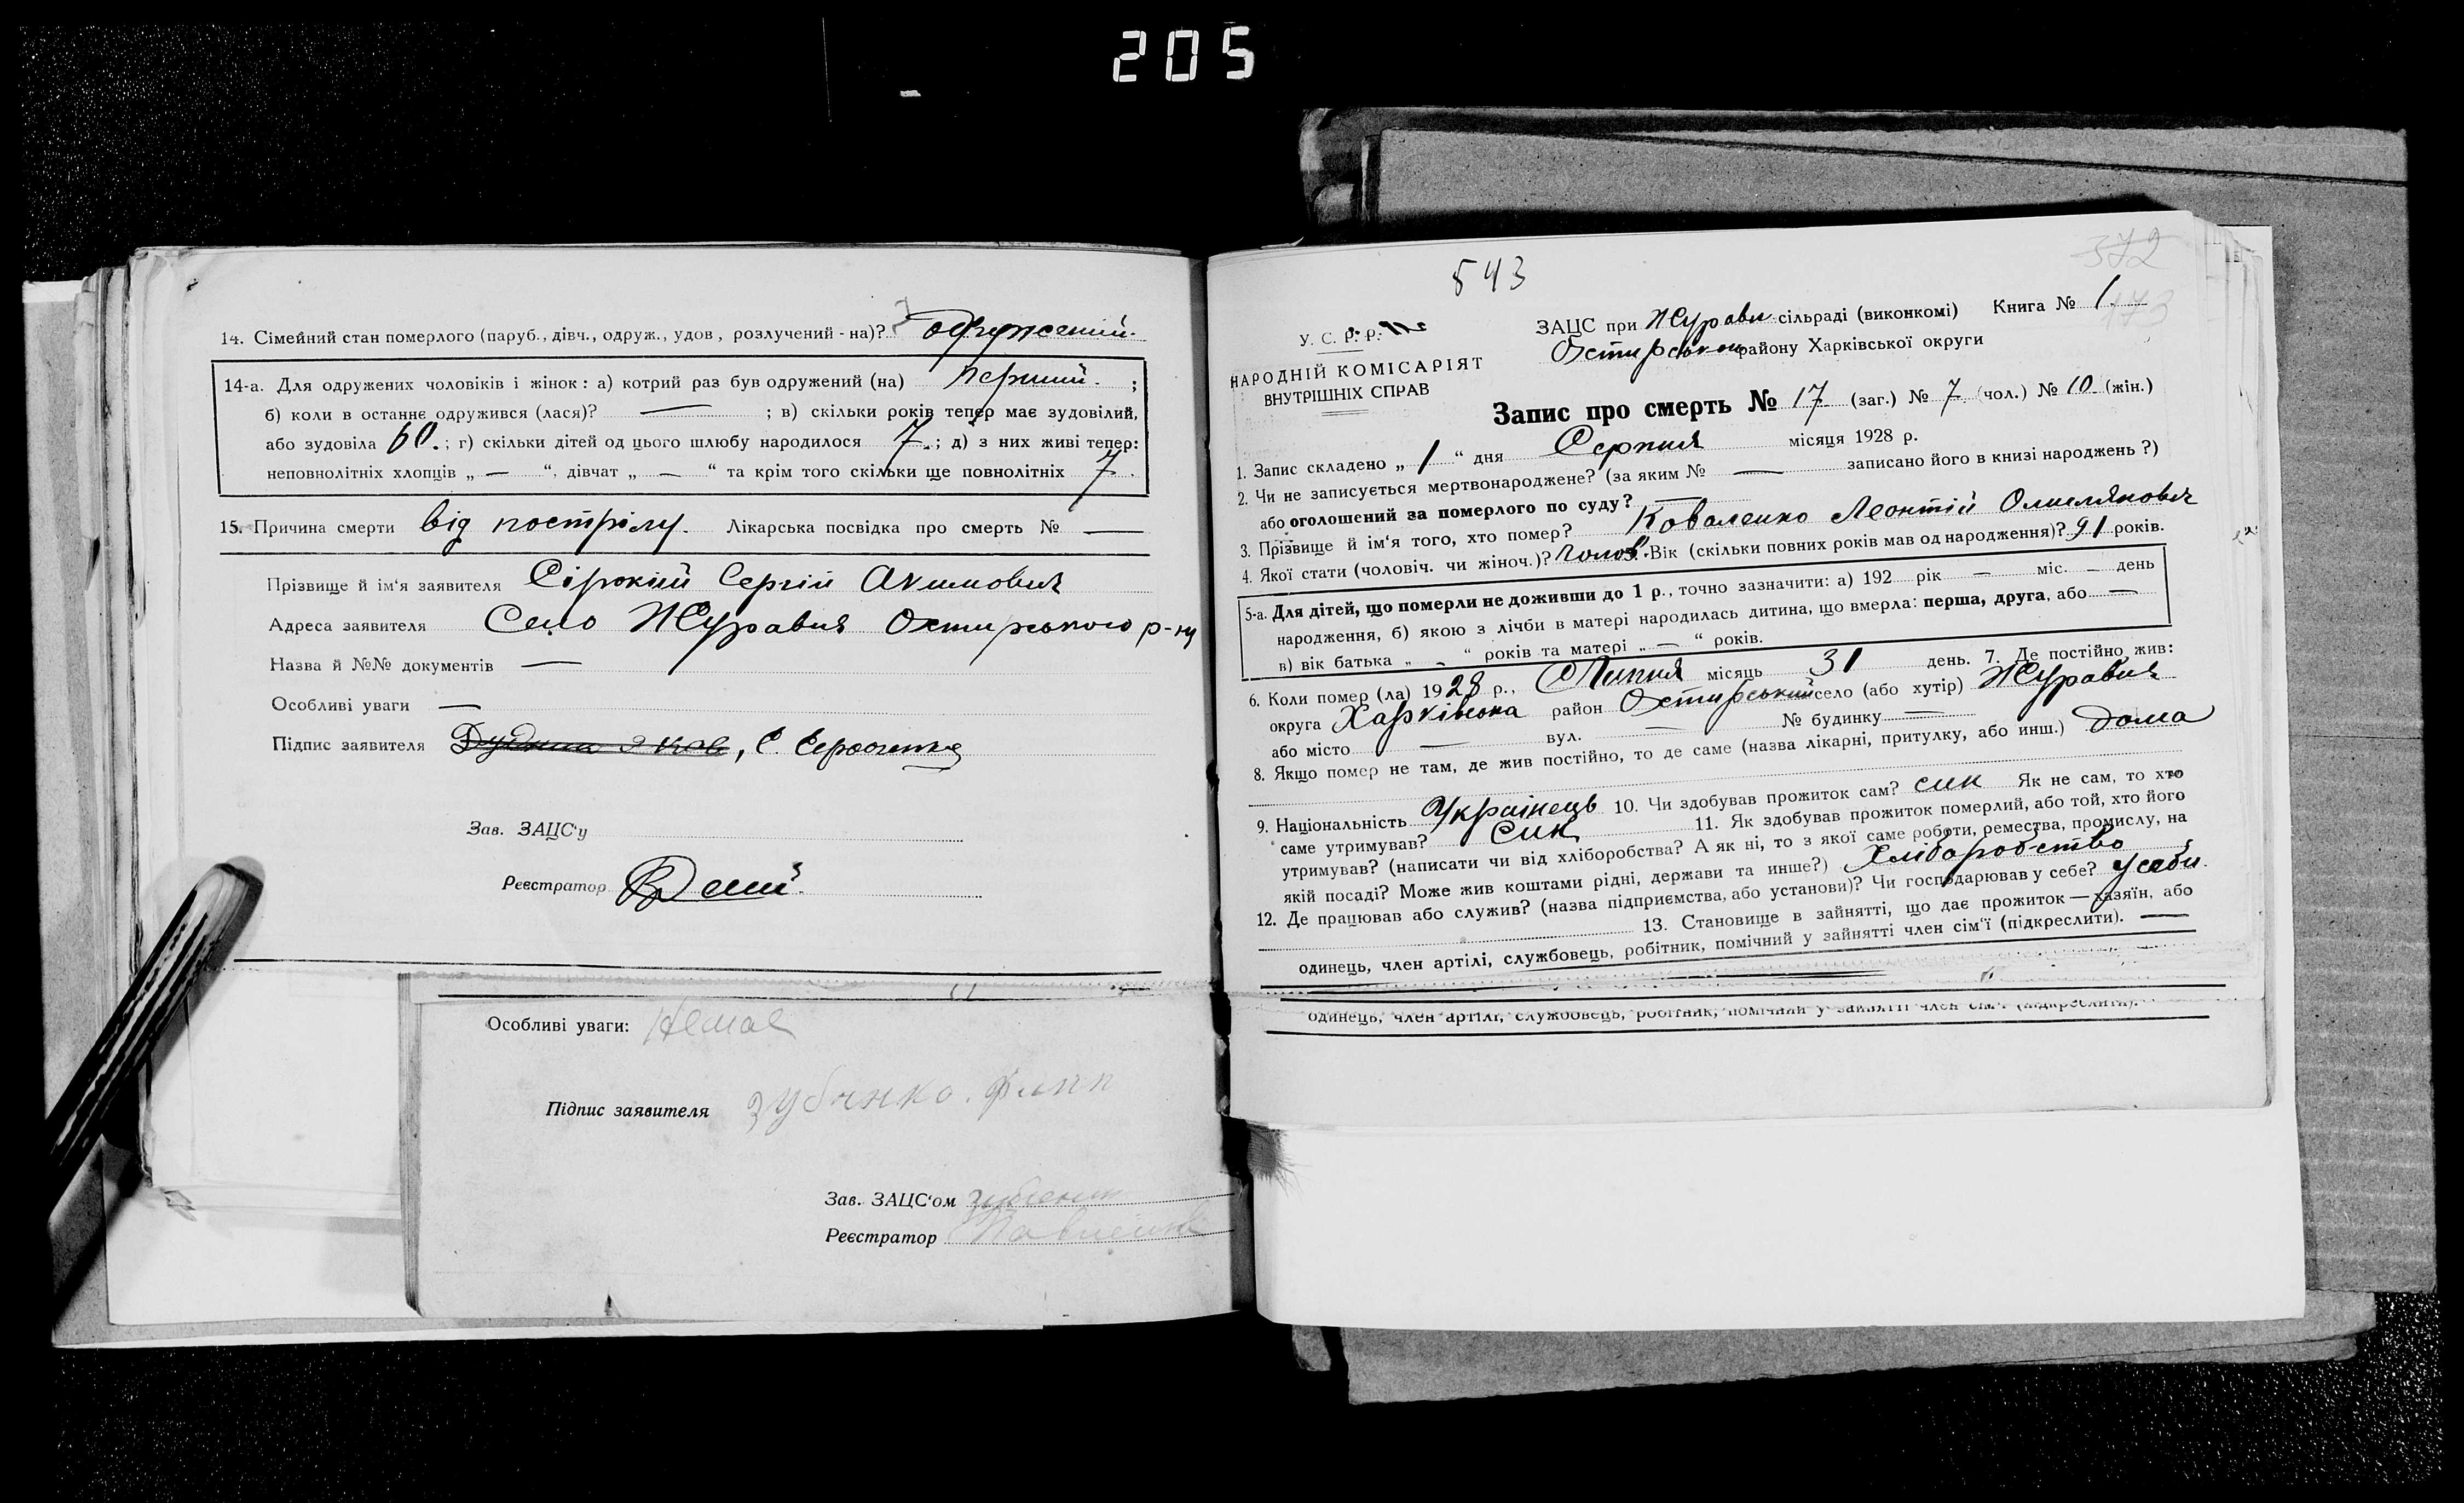 205
14. Сімейний стан померлого (паруб., дівч., одруж., удов, розлучений - на)? одружений.
14-а. Для одружених чоловіків і жінок: а) котрий раз був одружений (на) перший. ;
б) коли в останнє одружився (лася)? — ; в) скільки років тепер має зудовілий,
або зудовіла 60. ; г) скільки дітей од цього шлюбу народилося 7 ; д) з них живі тепер:
неповнолітніх хлопців „ — “, дівчат „ — “ та крім того скільки ще повнолітніх 7.
15. Причина смерти від пострілу. Лікарська посвідка про смерть № —
Прізвище й ім'я заявителя Сірокий Сергій Акимович
Адреса заявителя Село Журавня Охтирського р-ну
Назва й №№ документів —
Особливі уваги —
Підпис заявителя , С
Зав. ЗАЦС'у
Реєстратор
Особливі уваги: Немає
Підпис заявителя Зубенко. Филп
Зав. ЗАЦС'ом
Реєстратор Павленко
543
372
173
У. С. Р. Р.
НАРОДНІЙ КОМІСАРІЯТ
ВНУТРІШНІХ СПРАВ
ЗАЦС при Журавн сільраді (виконкомі) Книга № 1
Охтирському району Харківської округи
Запис про смерть № 17 (заг.) № 7 (чол.) № 10 (жін.)
1. Запис складено „ 1 “ дня Серпня місяця 1928 р.
2. Чи не записується мертвонароджене? (за яким № — записано його в книзі народжень?)
або оголошений за померлого по суду? —
3. Прізвище й ім'я того, хто помер? Коваленко Леонтій Омелянович
4. Якої стати (чоловіч. чи жіноч.)? чолов. 5. Вік (скільки повних років мав од народження)? 91 років.
5-а. Для дітей, що померли не доживши до 1 р., точно зазначити: а) 192 рік — міс. — день
народження, б) якою з лічби в матері народилась дитина, що вмерла: перша, друга, або —
в) вік батька „ - “ років та матері „ — “ років.
6. Коли помер (ла) 1928 р., Липня місяць 31 день. 7. Де постійно жив:
округа Харківська район Охтирський село (або хутір) Журавня
або місто — вул. — № будинку —
8. Якщо помер не там, де жив постійно, то де саме (назва лікарні, притулку, або инш.) дома
9. Національність Українець 10. Чи здобував прожиток сам? син Як не сам, то хто
саме утримував? син 11. Як здобував прожиток померлий, або той, хто його
утримував? (написати чи від хліборобства? А як ні, то з якої саме роботи, ремества, промислу, на
якій посаді? Може жив коштами рідні, держави та инше?) Хліборобство
12. Де працював або служив? (назва підприємства, або установи)? Чи господарював у себе? у себи.
13. Становище в зайнятті, що дає прожиток — хазяїн, або
одинець, член артілі, службовець, робітник, помічний у зайнятті член сім'ї (підкреслити). —
одинець, член артілі, службовець, робітник, помічний у зайнятті член сім'ї (підкреслити).